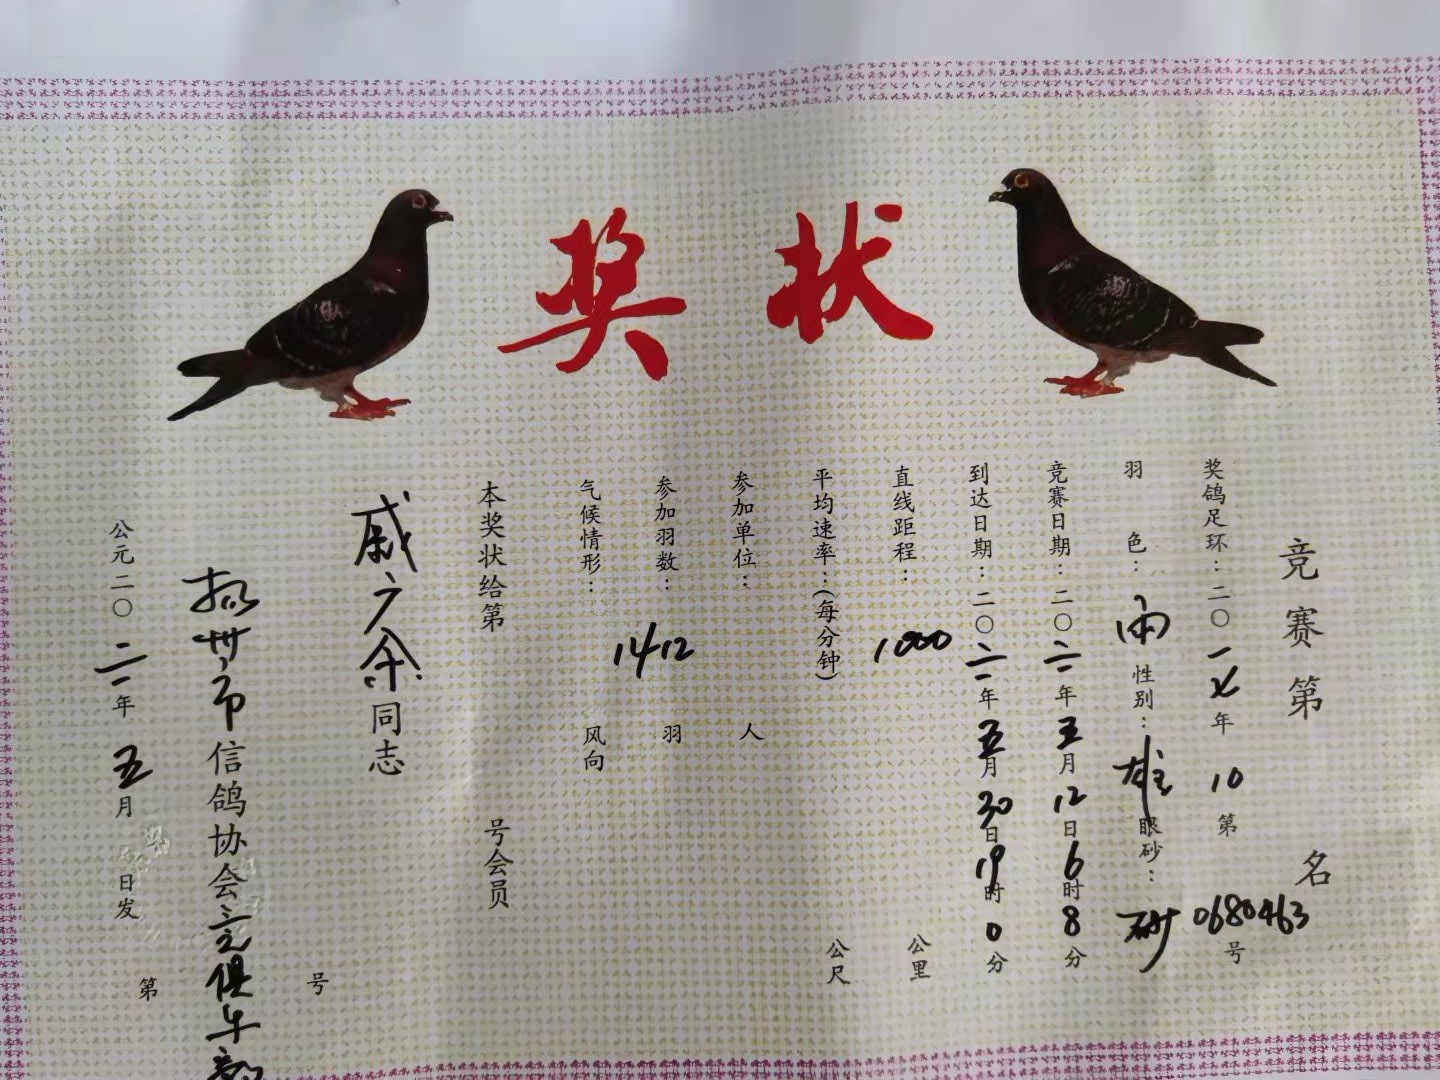 奖状
竞赛第 名
奖鸽足环：二〇一七年 10 第 0680463 号
羽 色：雨 性别：雄 眼砂：砂
竞赛日期：二〇二一年五月12日6时8分
到达日期：二〇二一年五月30日19时0分
直线距程：1000 公里
平均速率：(每分钟) 公尺
参加单位： 人
参加羽数：1412 羽
气候情形： 风向
本奖状给第 号会员
戚广余同志
扬州市信鸽协会三元俱乐部
公元二〇二一年五月 日发
第 号